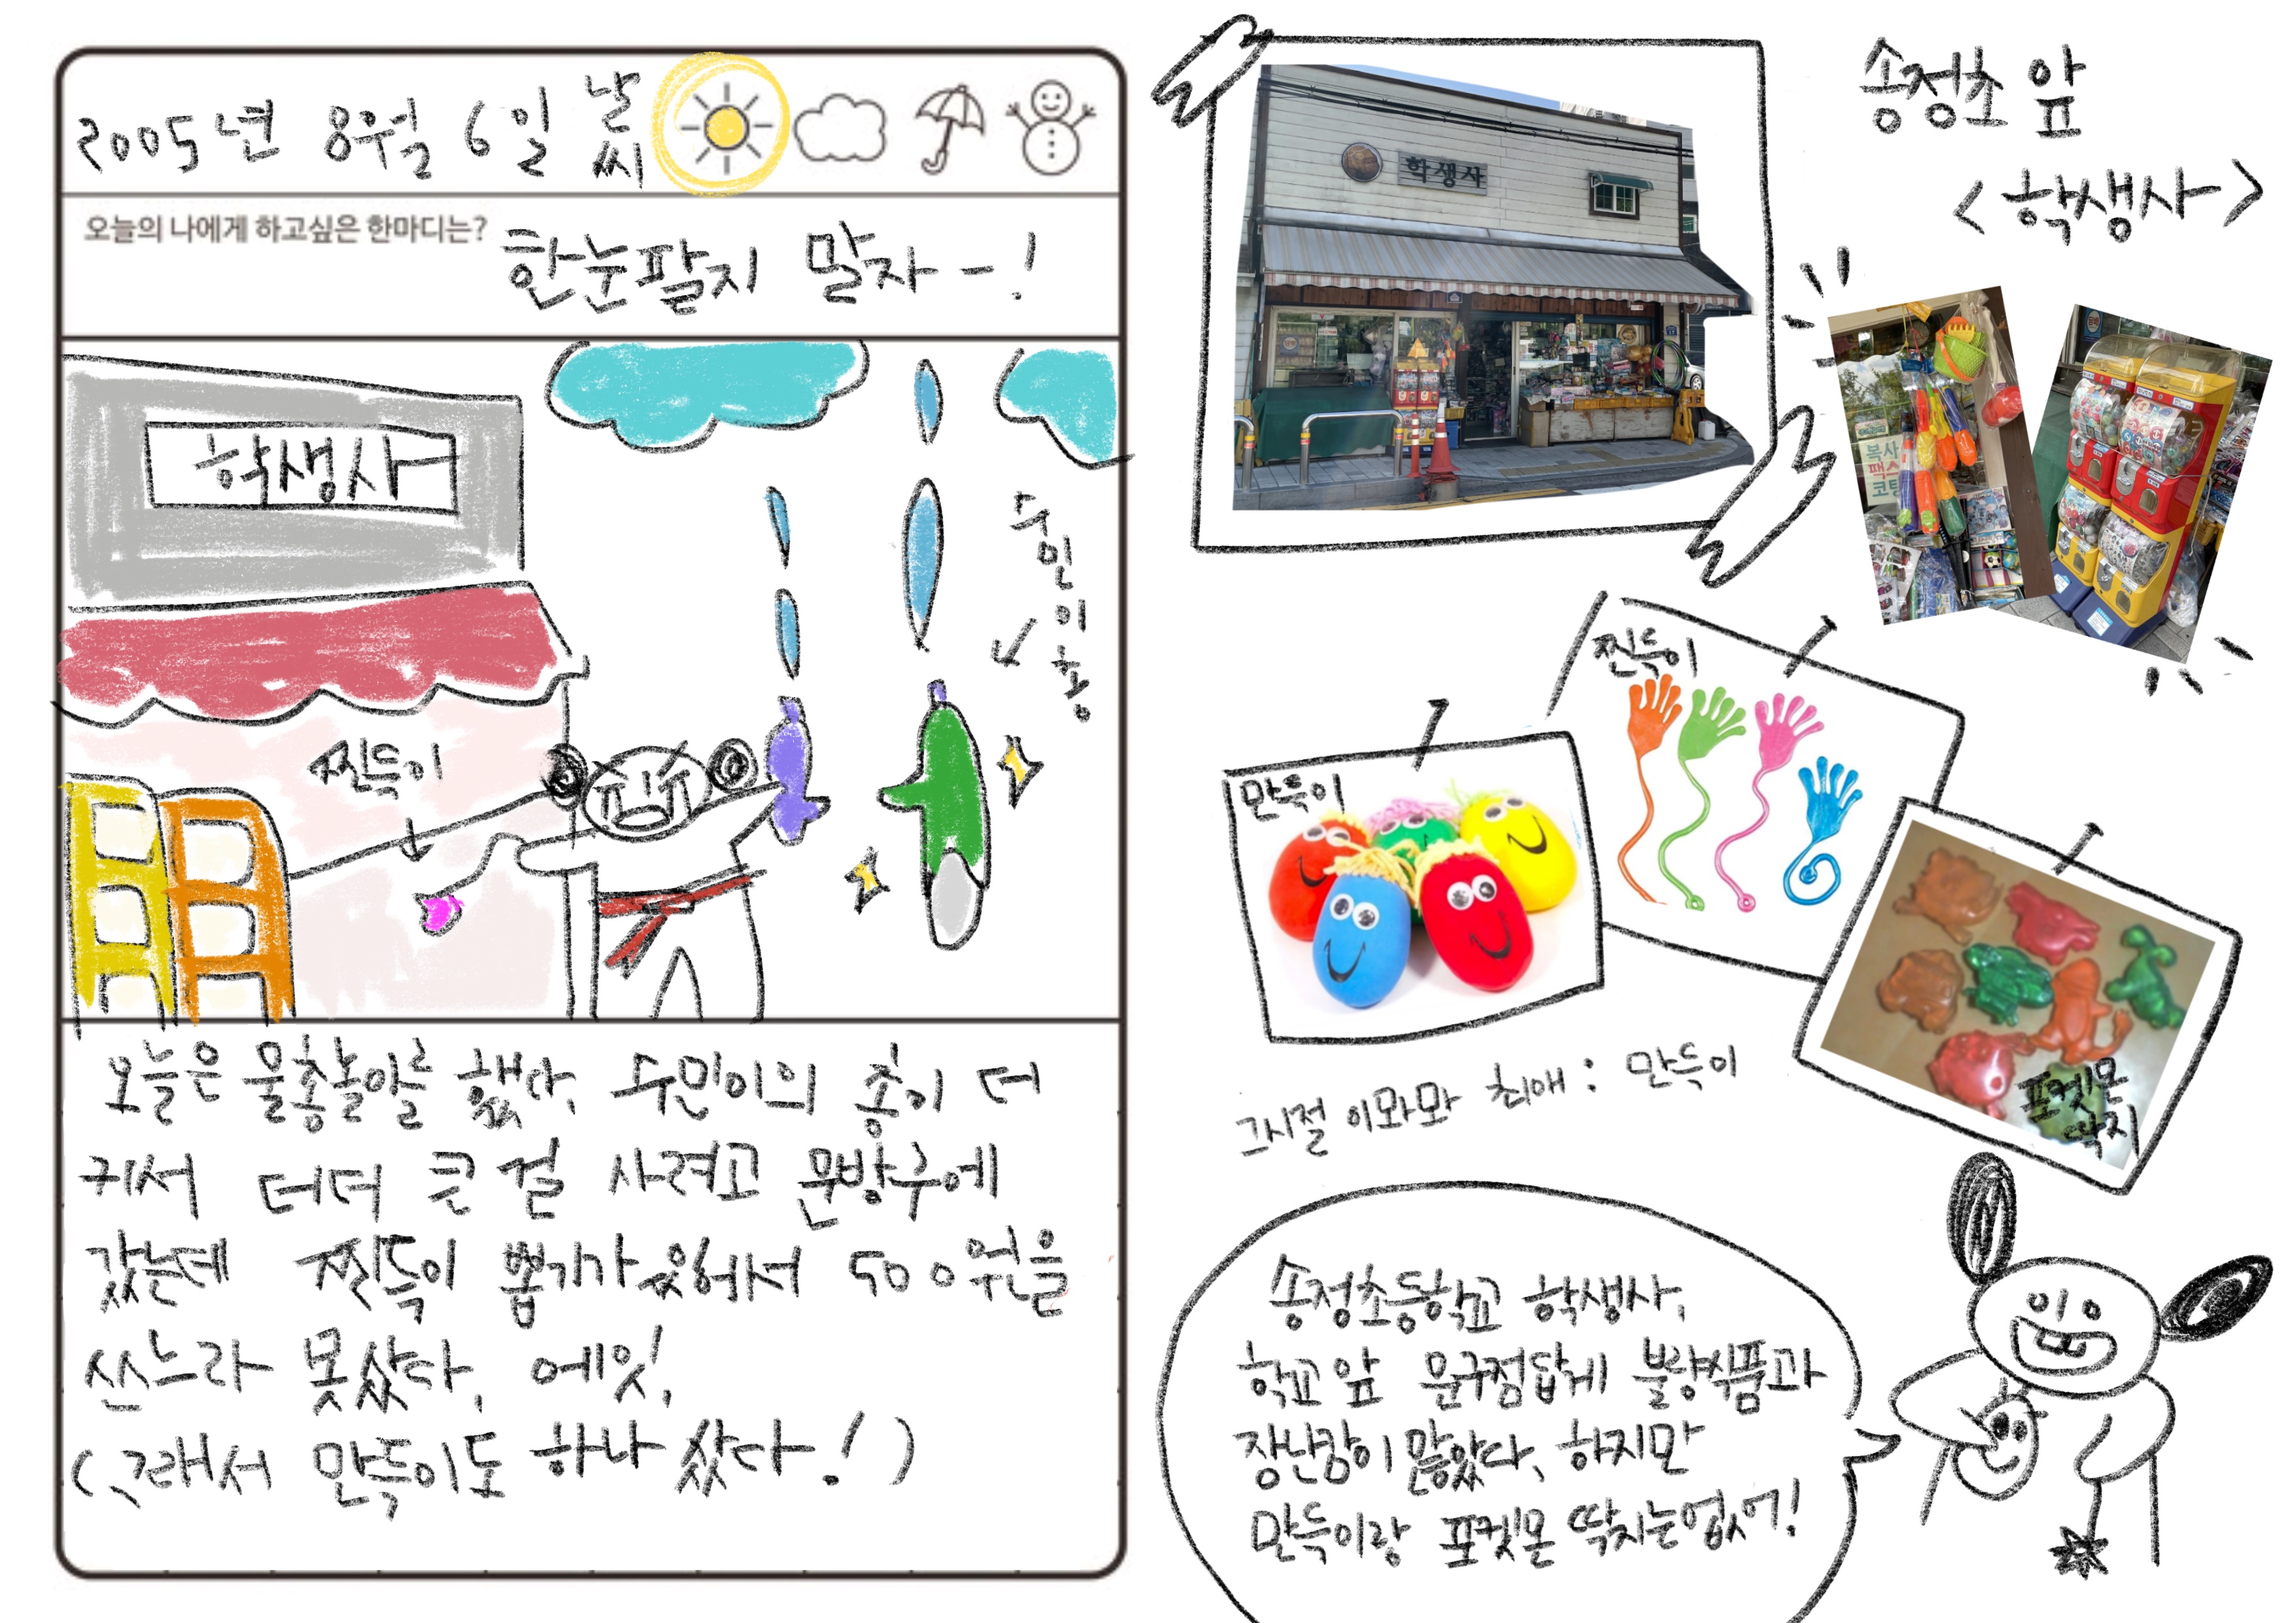 2005년 8월 6일 날씨
오늘의 나에게 하고싶은 한마디는?
한눈팔지 말자-!
학생사
수민이 총
찐득이
오늘은 물총놀이를 했다. 수민이의 총이 더
커서 더더 큰 걸 사려고 문방구에
갔는데 찐득이 뽑기가 있어서 500원을
쓰느라 못샀다. 에잇!
(그래서 만득이도 하나 샀다!)
송정초 앞
<학생사>
학생사
복사
팩스
코팅
찐득이
만득이
포켓몬
딱지
그시절 이모모 최애: 만득이
송정초등학교 학생사.
학교 앞 문구점답게 불량식품과
장난감이 많았다. 하지만
만득이랑 포켓몬 딱지는 없어!